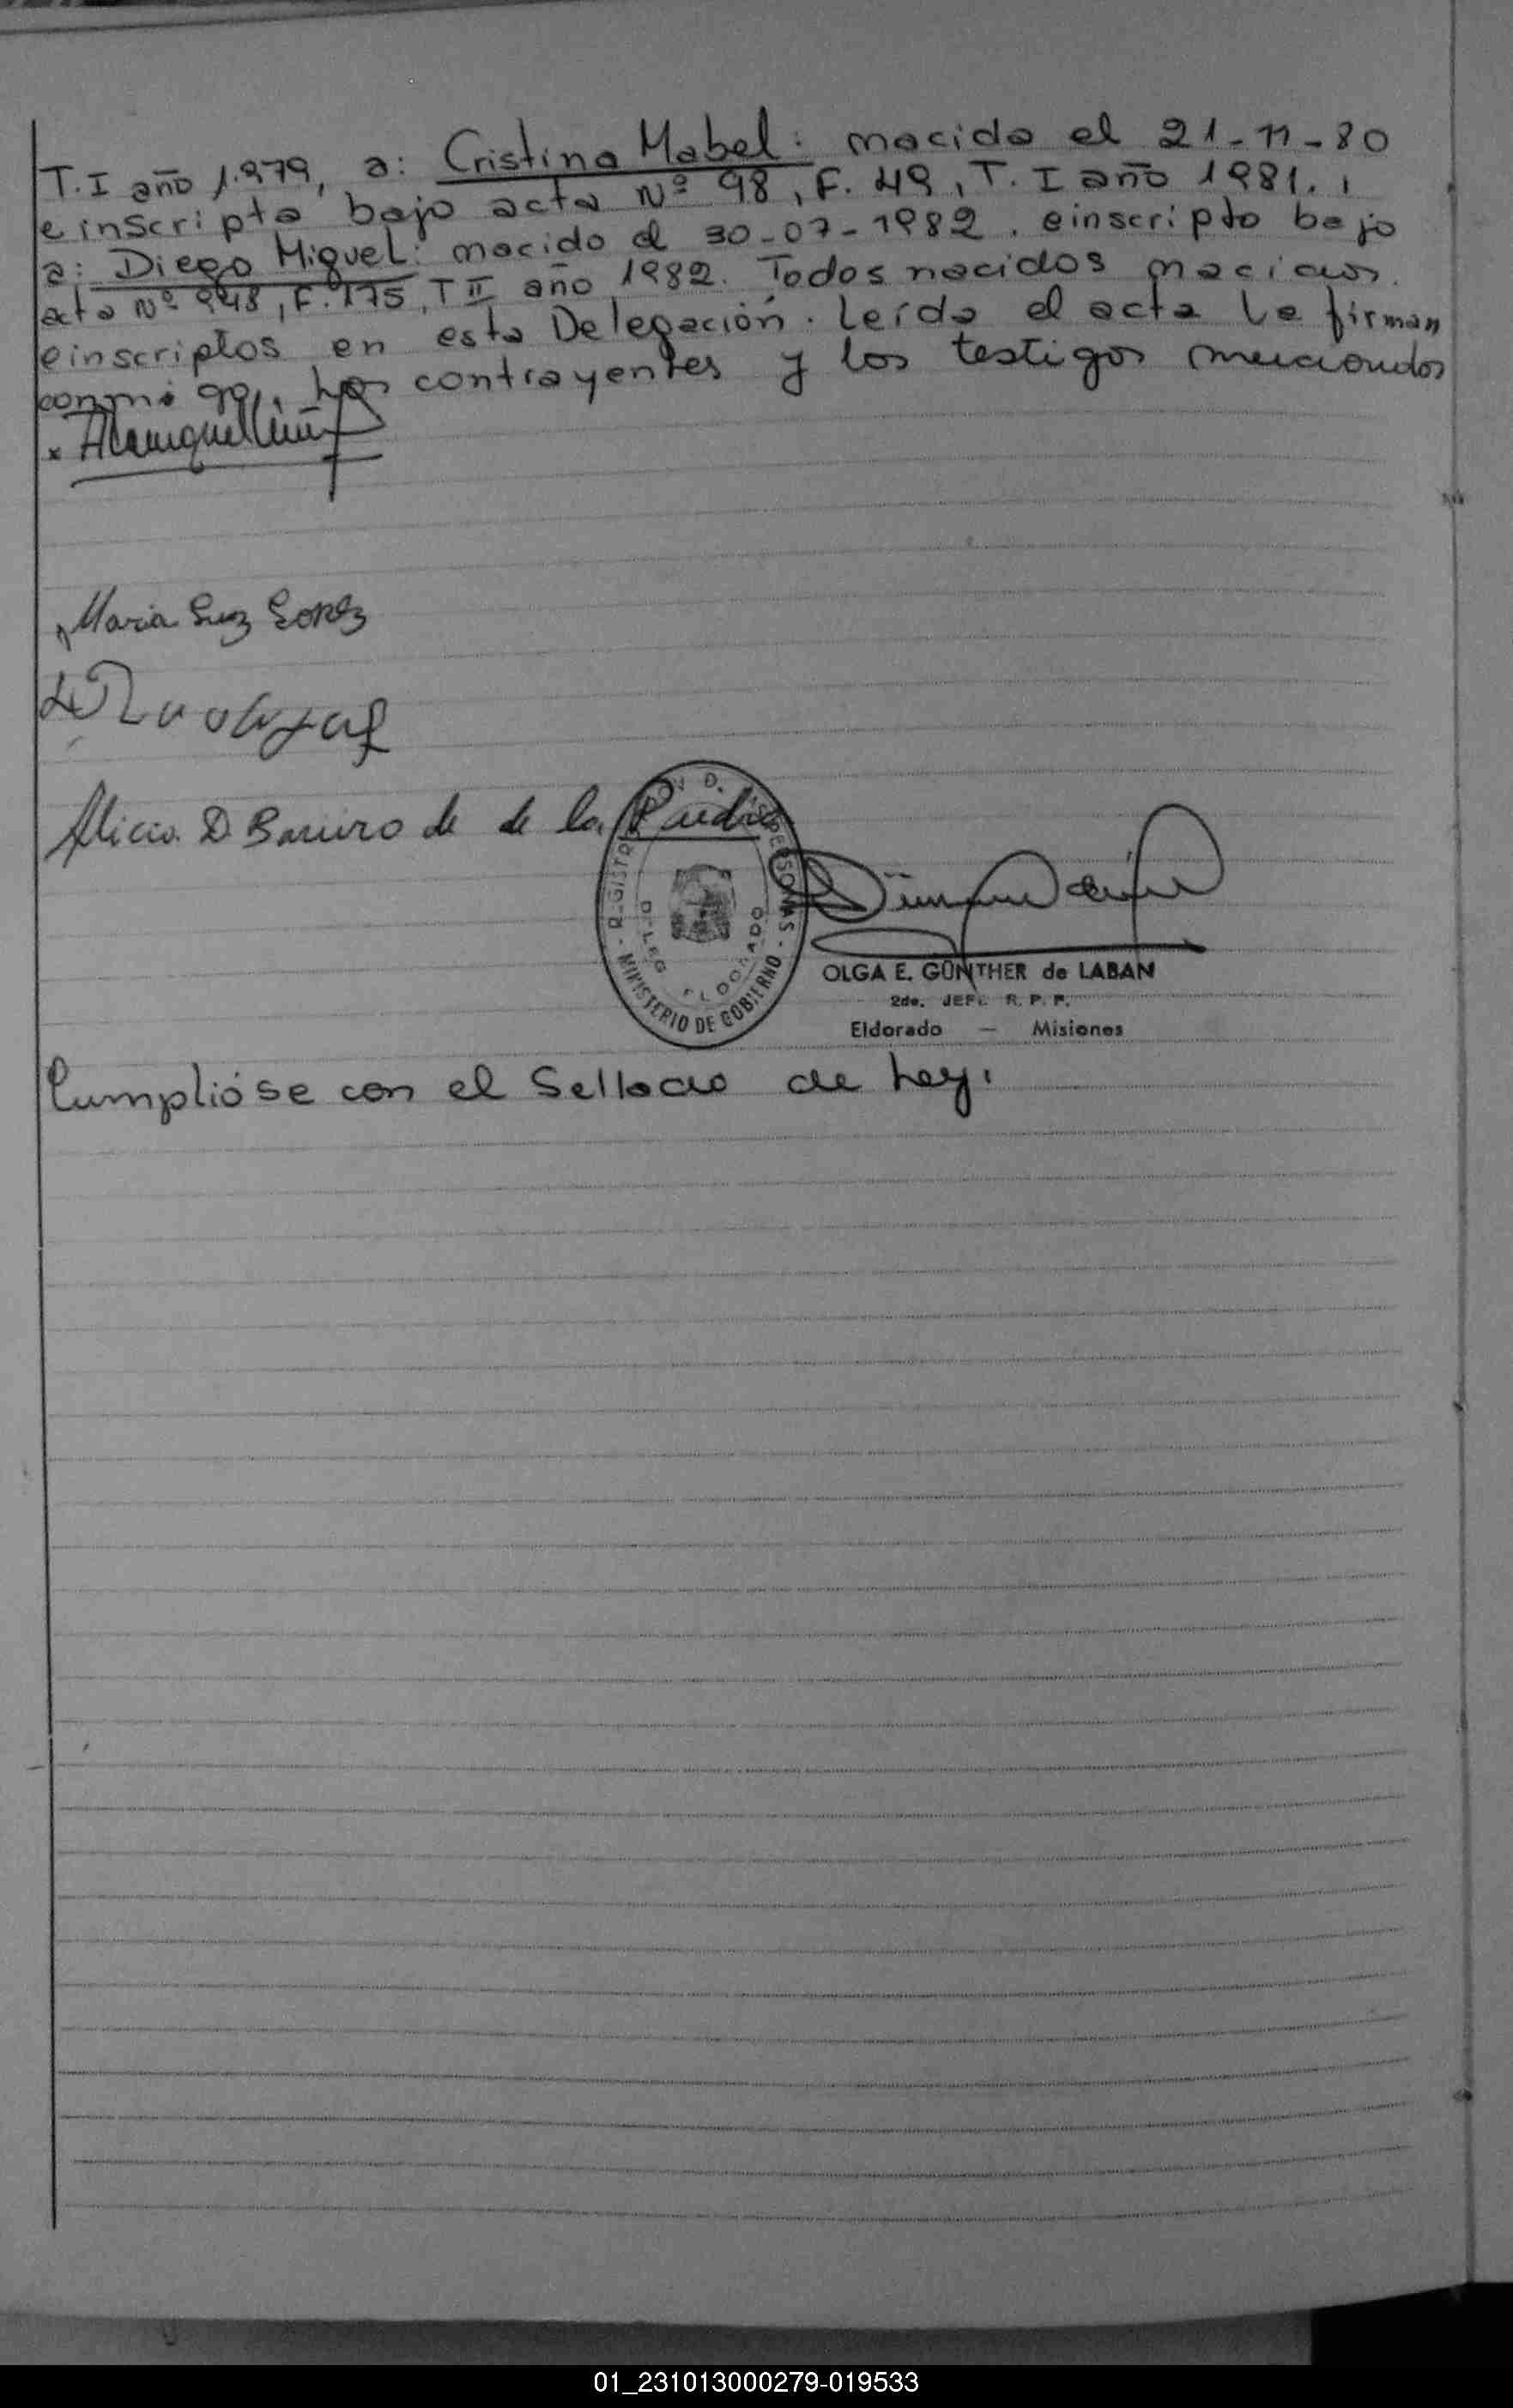 T.I año 1.979, a: Cristina Mabel: nacida el 21-11-80
e inscripta bajo acta Nº 98, F. 49, T. I año 1981.,
a: Diego Miguel: nacido el 30-07-1982. e inscripto bajo
acta Nº 948, F. 175, T II año 1982. Todos nacidos nacidos.
e inscriptos en esta Delegación. Leída el acta la firman
conmigo, los contrayentes y los testigos mencionados
Maria Luz Lopez
Alicia D Barriro de de la
REGISTRO D. PERSONAS
DELEG ELDORADO
MINISTERIO DE GOBIERNO
OLGA E. GÜNTHER de LABAN
2da. JEFE R. P. P.
Eldorado — Misiones
Cumplióse con el Sellado de ley.
01_231013000279-019533